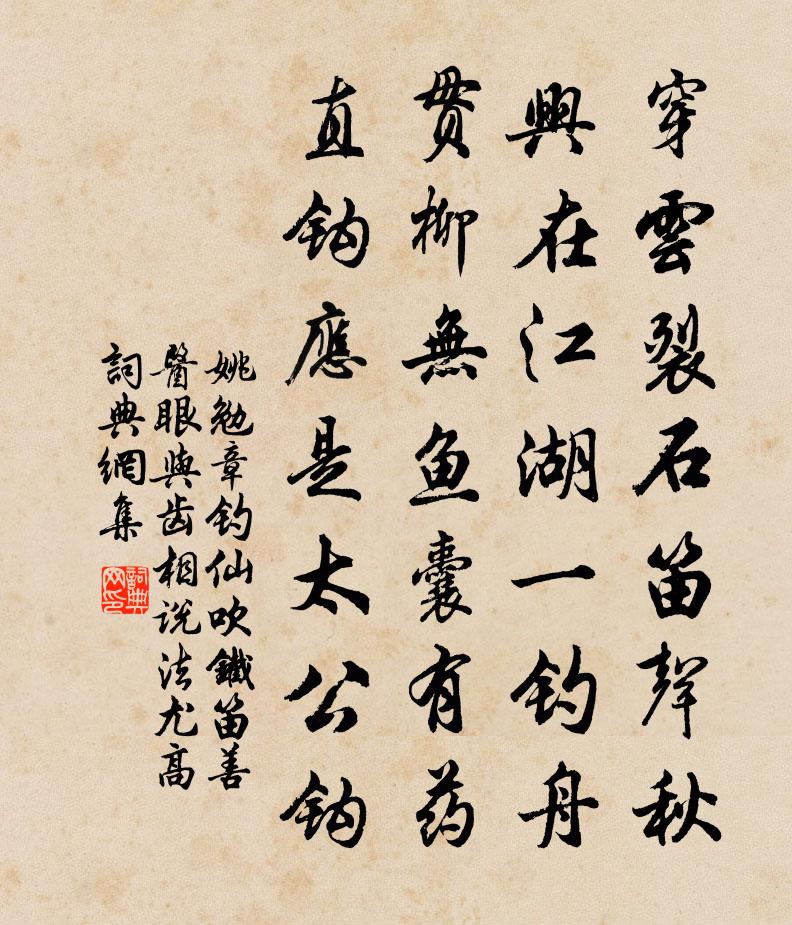 穿雲裂石笛聲秋
興在江湖一钓舟
贯柳無鱼囊有药
直钩應是太公钩
姚勉章钓仙吹鐵笛善
醫眼與齿相说法尤高
詞典網集
詞典网印